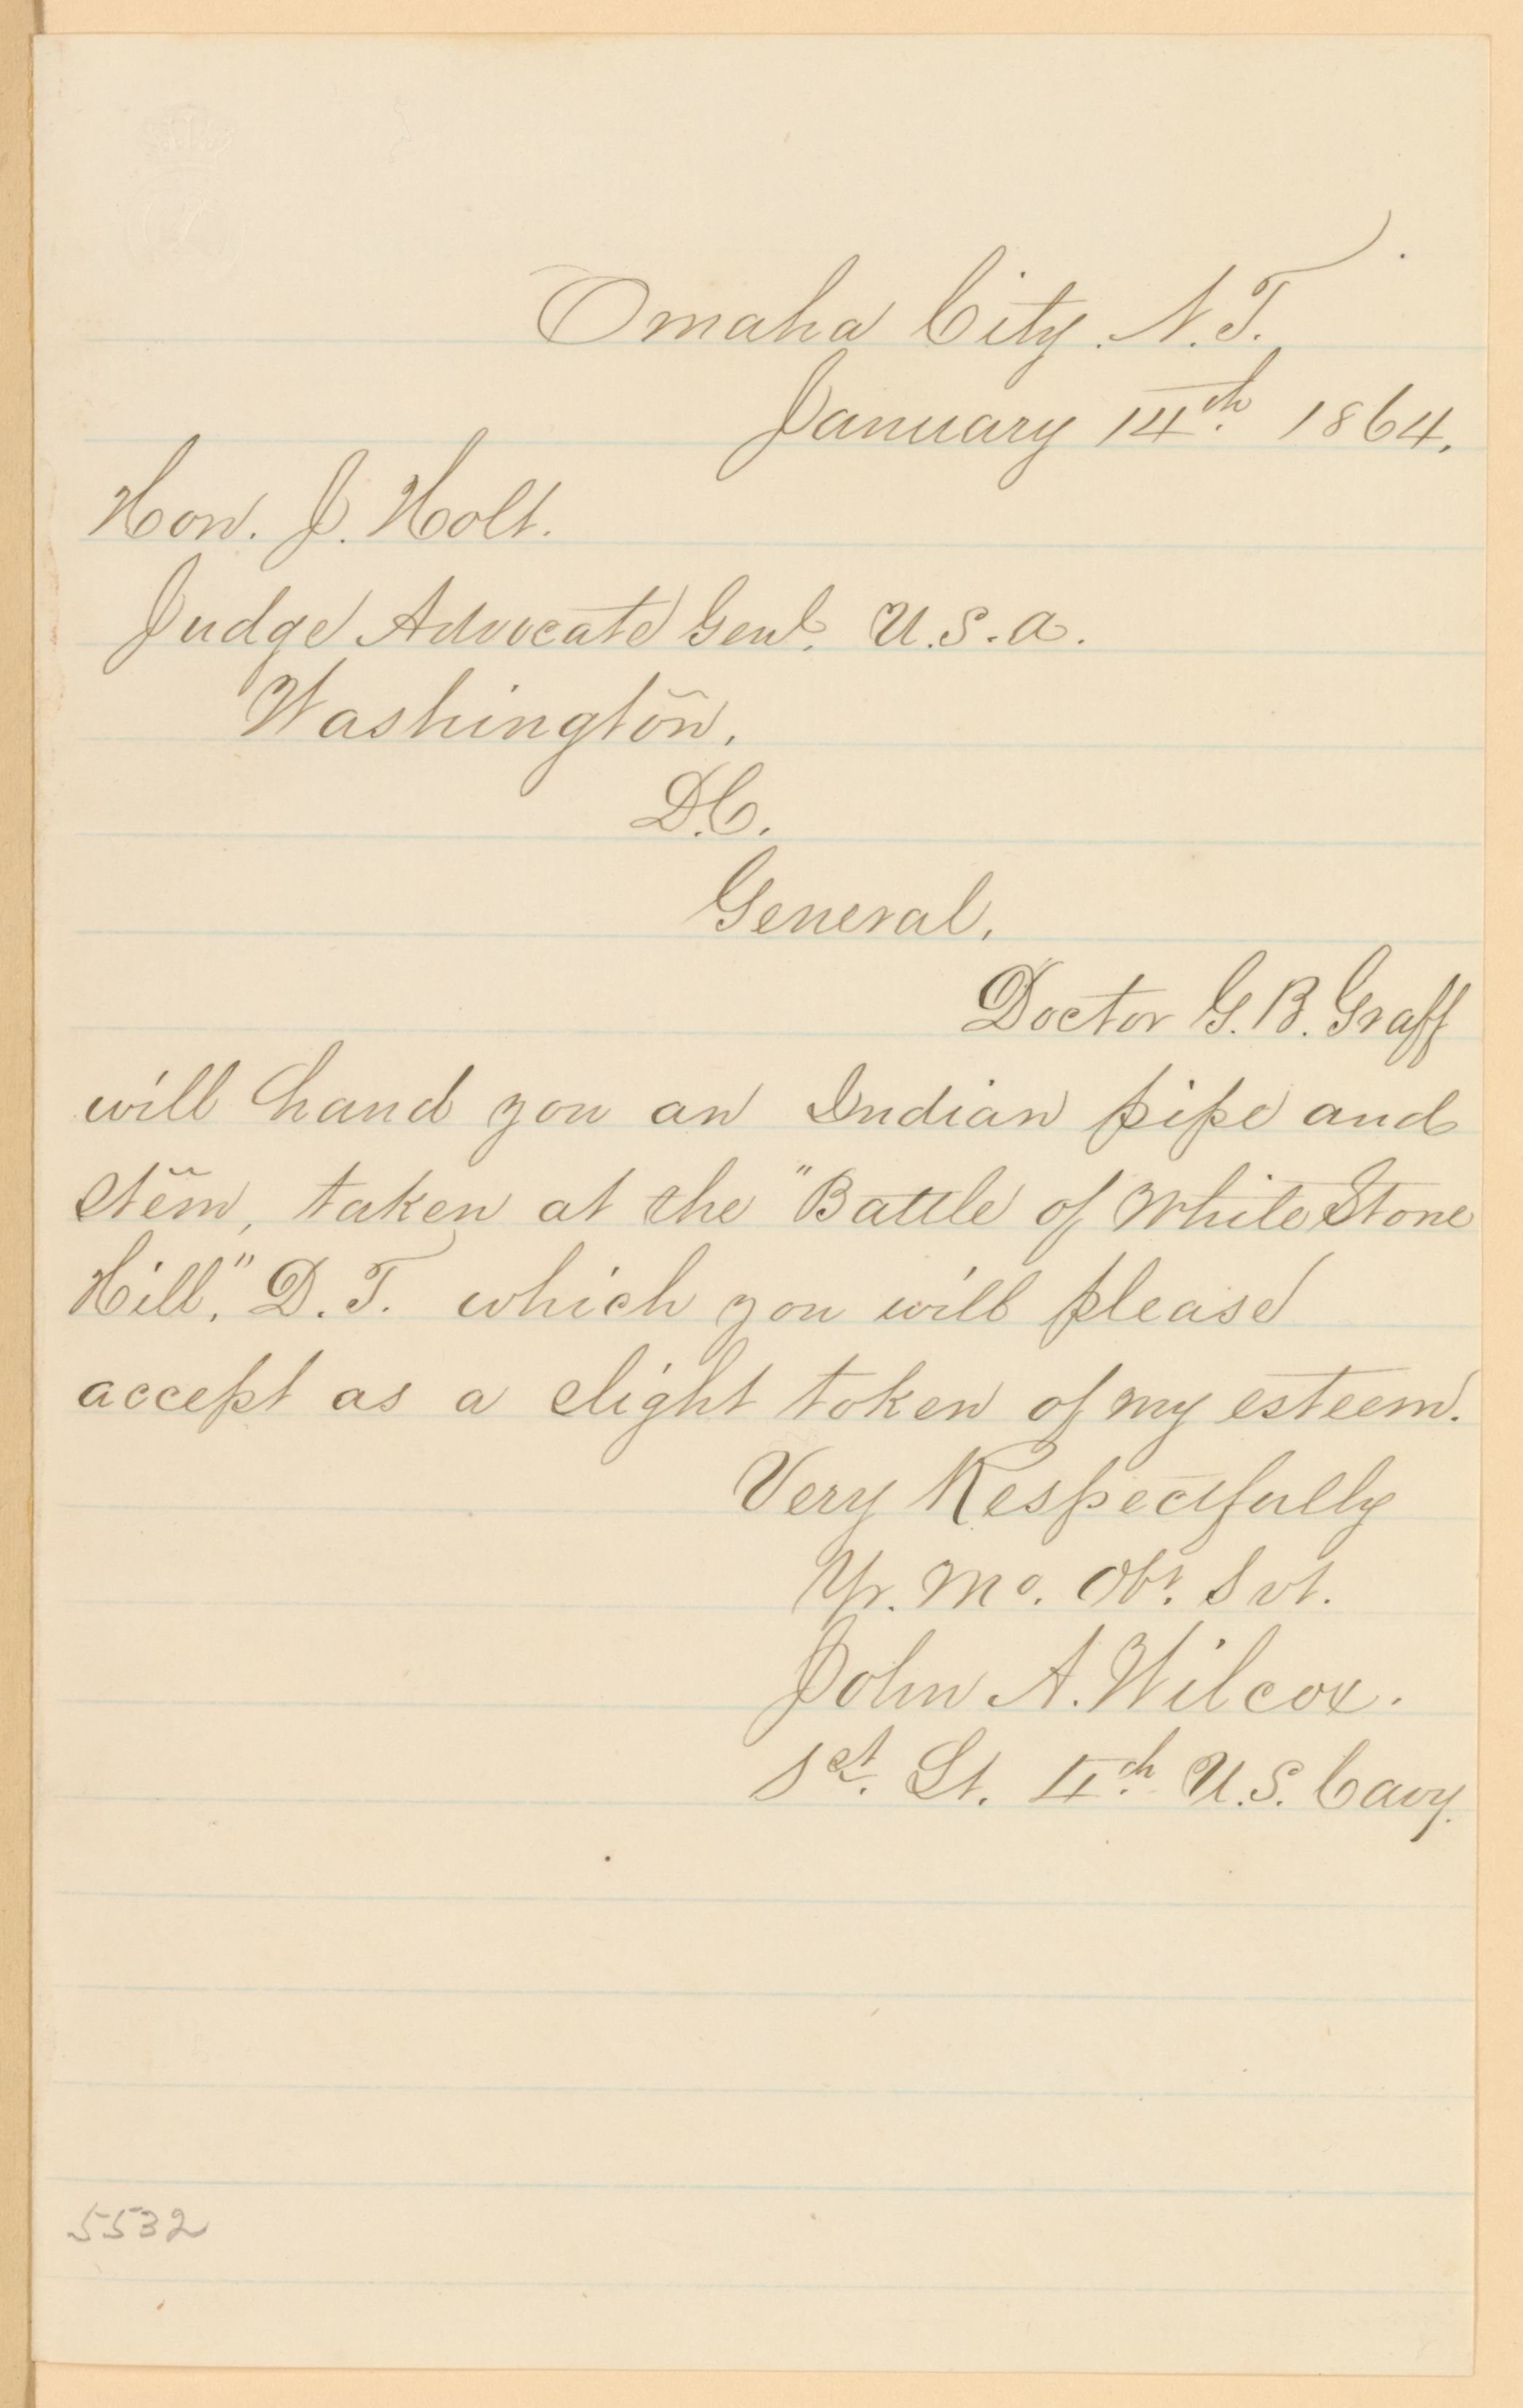 Omaha City. N.T.
January 14th. 1864.
Hon. J. Holt.
Judge Advocate Genl. U.S.A.
Washington.
D.C.
General.
Doctor G. B. Graff
will hand you an Indian pipe and
stem, taken at the "Battle of White Stone
Hill," D. T. which you will please
accept as a slight token of my esteem.
Very Respectfully
Yr. Mo. Obt. Svt.
John A. Wilcox.
1st. Lt. 4th. U.S. Cavy.
5532